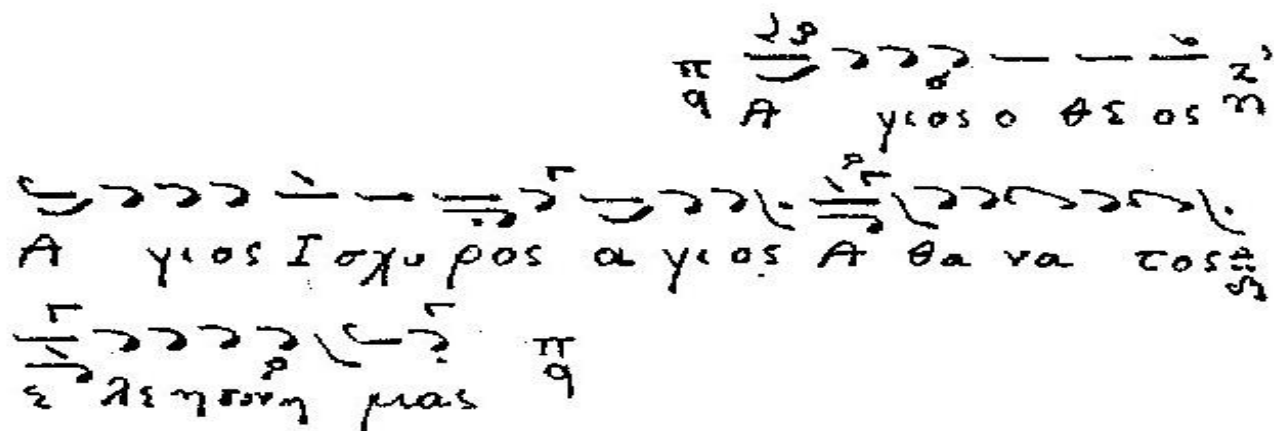 Α γιος ο θε ος
Α γιος Ισχυ ρος α γιος Α θα να τος
ε λεησονη μας